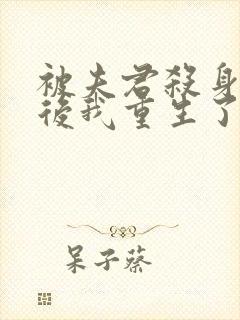 被夫君殺身
後我重生了
呆子蔡